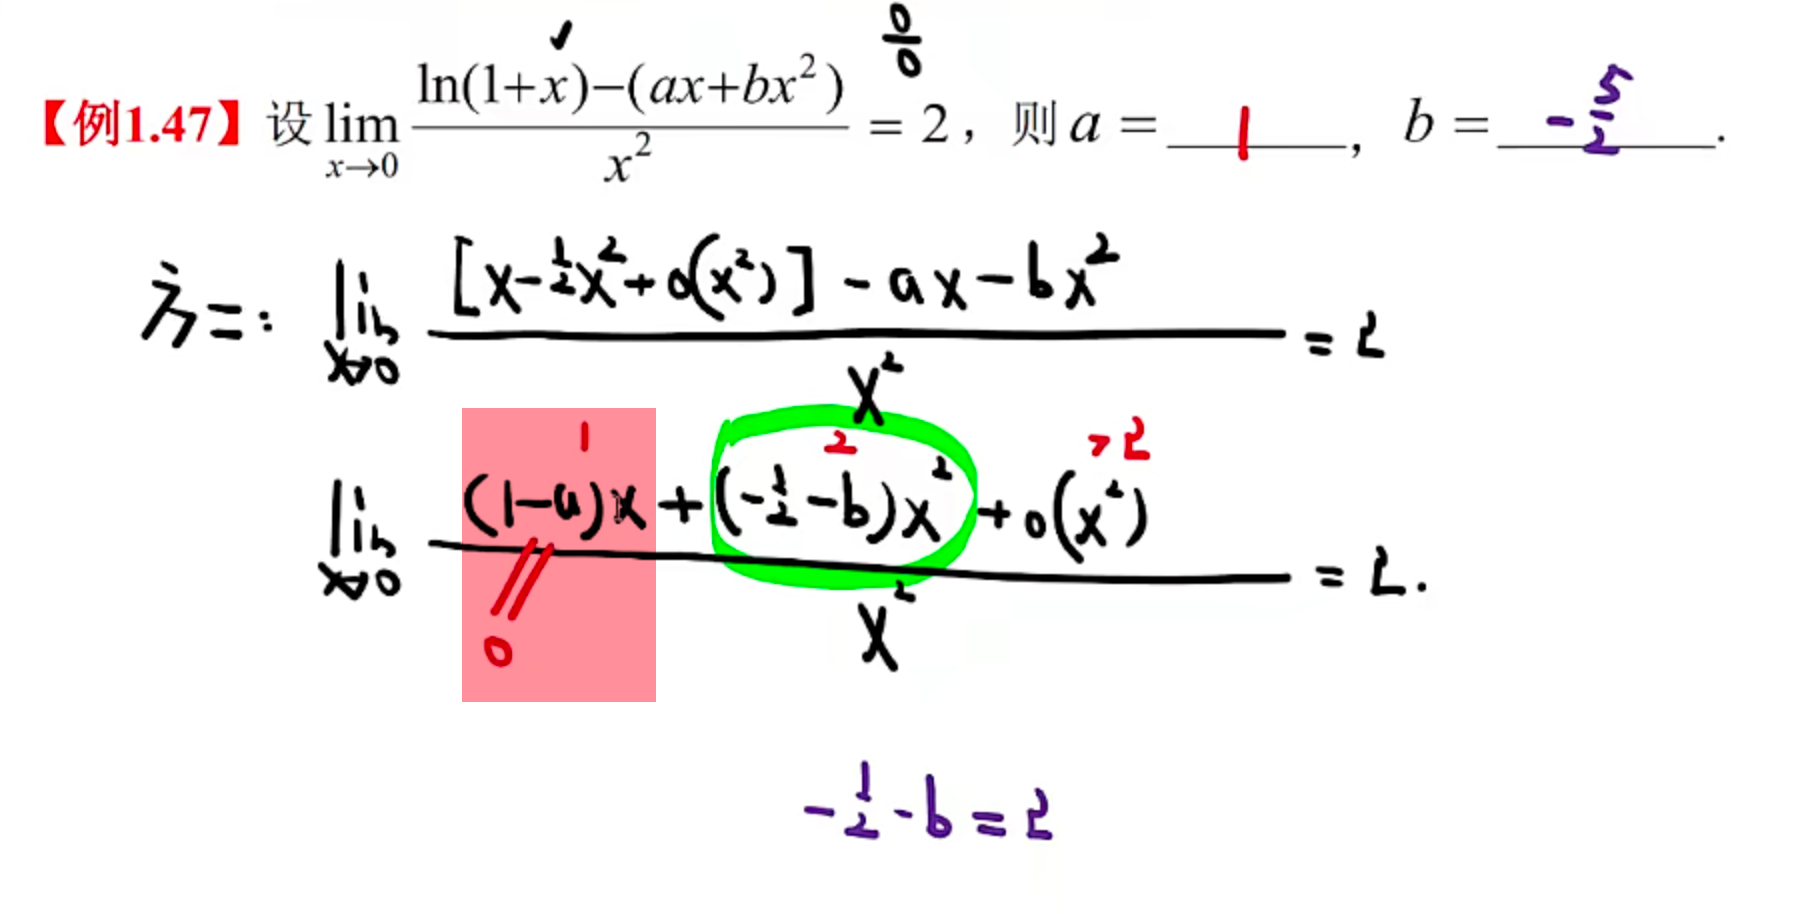 ✓ 0/0
【例1.47】设 lim x→0 (ln(1+x)−(ax+bx²))/x² = 2，则 a = 1，b = -5/2.
方二: lim x→0 ([x-1/2x²+o(x²)]-ax-bx²)/x² = 2
1 2 >2
lim x→0 ((1-a)x+(-1/2-b)x²+o(x²))/x² = 2.
0
-1/2-b=2